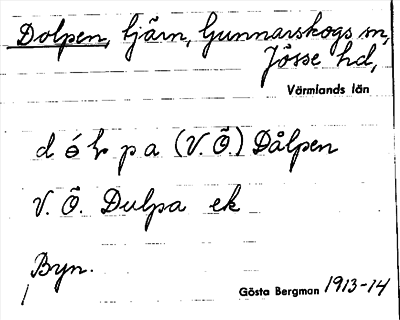 Dolpen, tjärn, Gunnarskogs sn,
Jösse hd,
Värmlands län
d ó l p a (V. Ö.) Dålpen
V. Ö. Dulpa ek
Byn.
Gösta Bergman 1913-14